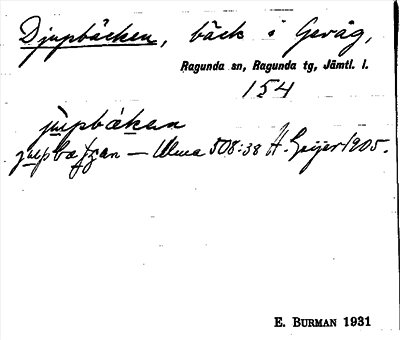 Djupbäcken, bäck i Gevåg,
Ragunda sn, Ragunda tg, Jämtl. l.
154
jùpbákan
– Ulma 508:38 H. Geijer 1905.
E. BURMAN 1931